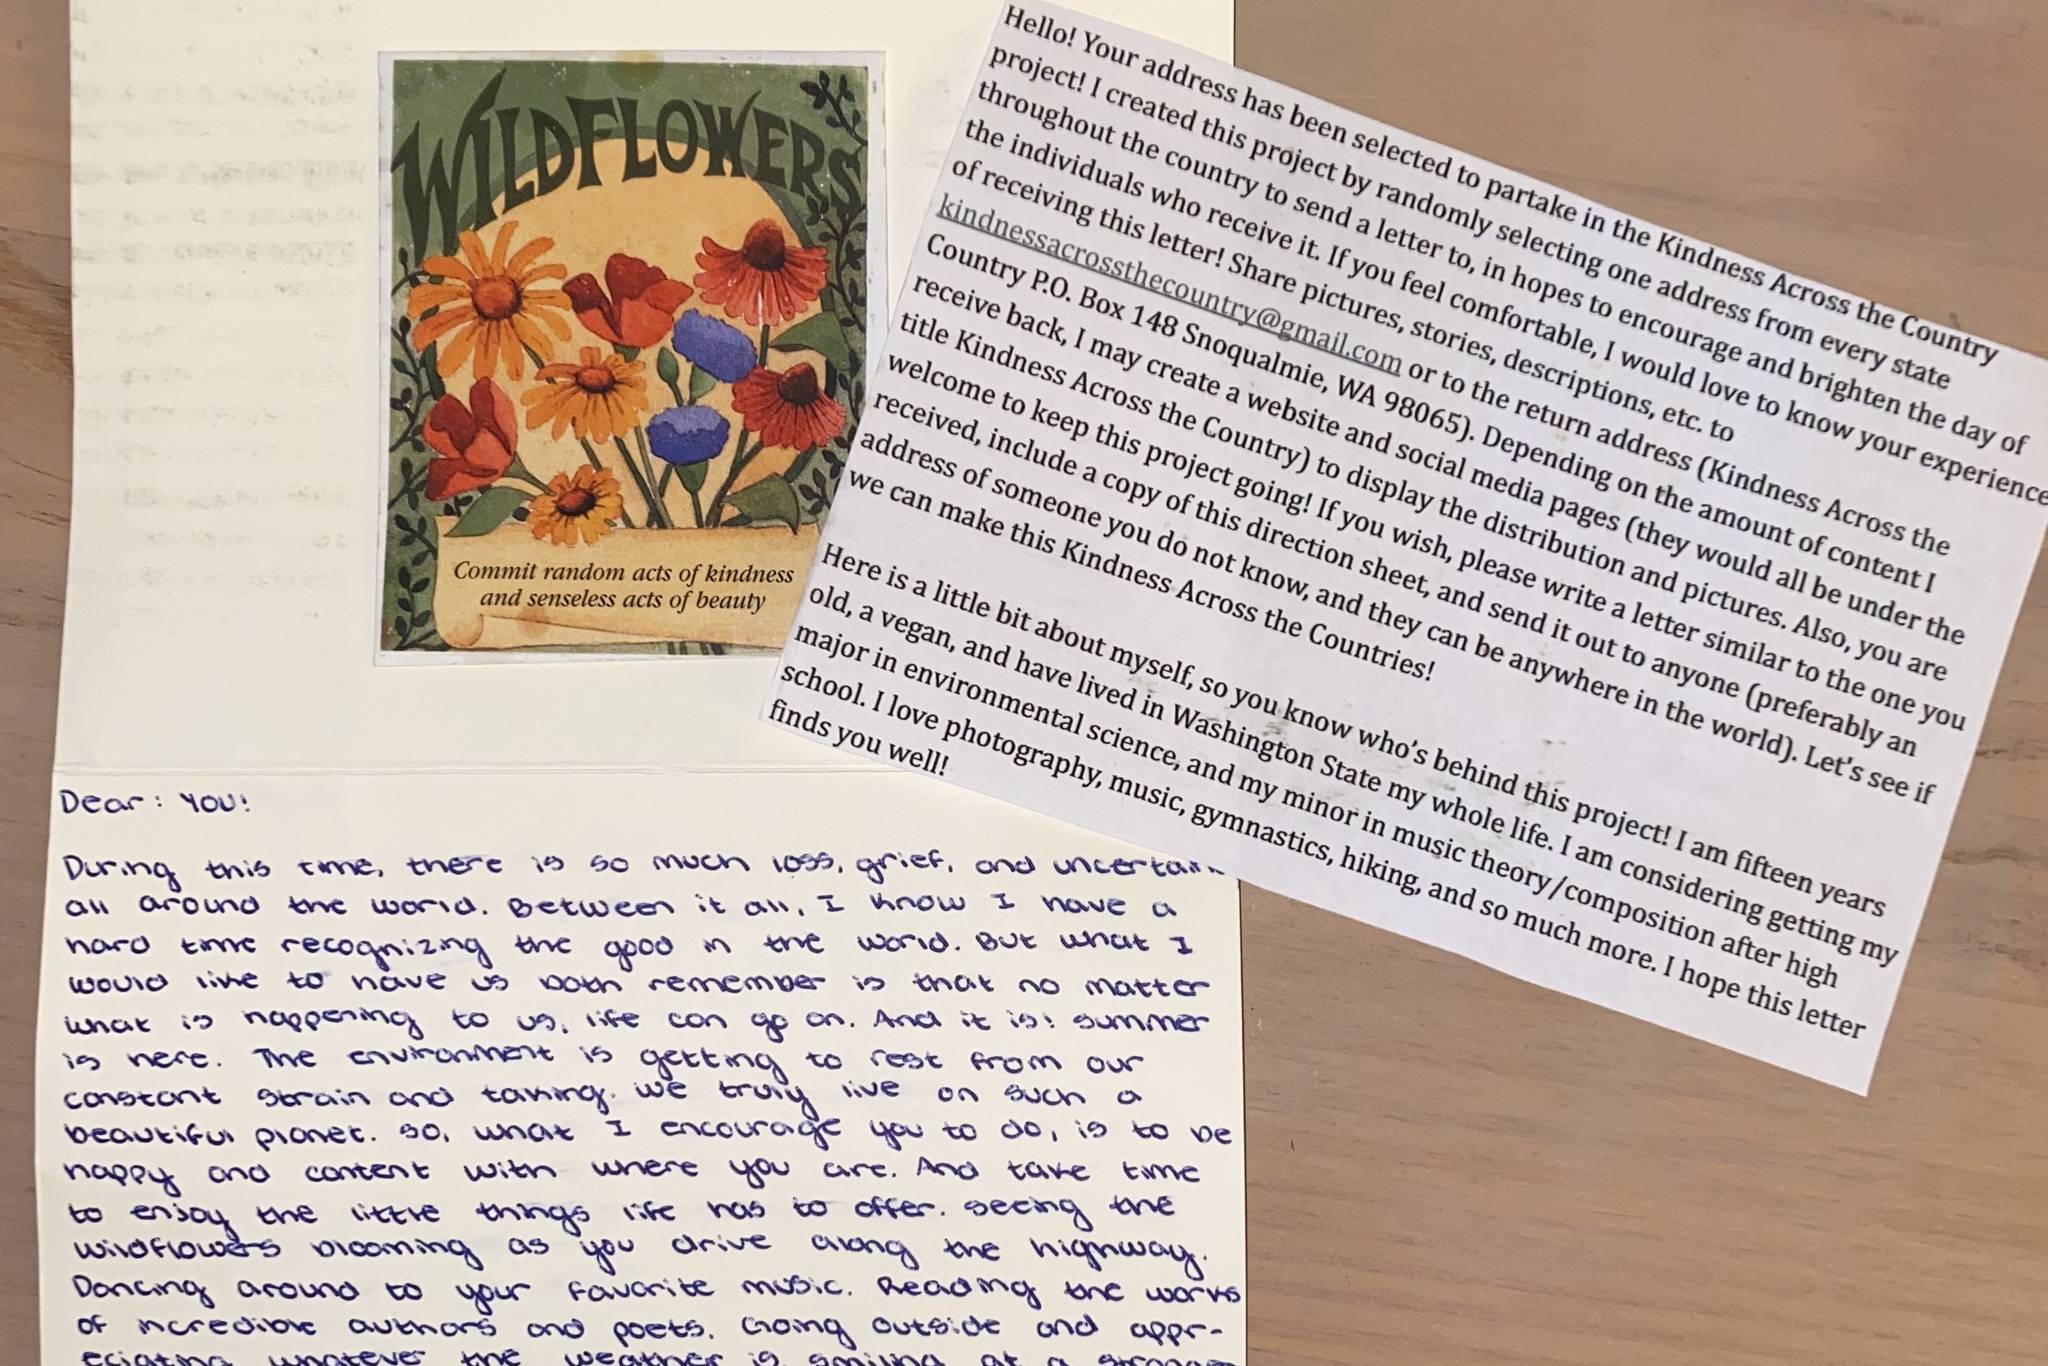 WILDFLOWERS
Commit random acts of kindness
and senseless acts of beauty
Hello! Your address has been selected to partake in the Kindness Across the Country
project! I created this project by randomly selecting one address from every state
throughout the country to send a letter to, in hopes to encourage and brighten the day of
the individuals who receive it. If you feel comfortable, I would love to know your experience
of receiving this letter! Share pictures, stories, descriptions, etc. to
kindnessacrossthecountry@gmail.com or to the return address (Kindness Across the
Country P.O. Box 148 Snoqualmie, WA 98065). Depending on the amount of content I
receive back, I may create a website and social media pages (they would all be under the
title Kindness Across the Country) to display the distribution and pictures. Also, you are
welcome to keep this project going! If you wish, please write a letter similar to the one you
received, include a copy of this direction sheet, and send it out to anyone (preferably an
address of someone you do not know, and they can be anywhere in the world). Let's see if
we can make this Kindness Across the Countries!
Here is a little bit about myself, so you know who's behind this project! I am fifteen years
old, a vegan, and have lived in Washington State my whole life. I am considering getting my
major in environmental science, and my minor in music theory/composition after high
school. I love photography, music, gymnastics, hiking, and so much more. I hope this letter
finds you well!
Dear: YOU!
During this time, there is so much loss, grief, and
all around the world. Between it all, I know I have a
hard time recognizing the good in the world. But what I
would like to have us both remember is that no matter
what is happening to us, life can go on. And it is! Summer
is here. The environment is getting to rest from our
constant strain and taking. We truly live on such a
beautiful planet. So, what I encourage you to do, is to be
happy and content with where you are. And take time
to enjoy the little things life has to offer. Seeing the
wildflowers blooming as you drive along the highway.
Dancing around to your favorite music. Reading the works
of incredible authors and poets. Going outside and appr-
eciating whatever the weather is, smiling at a